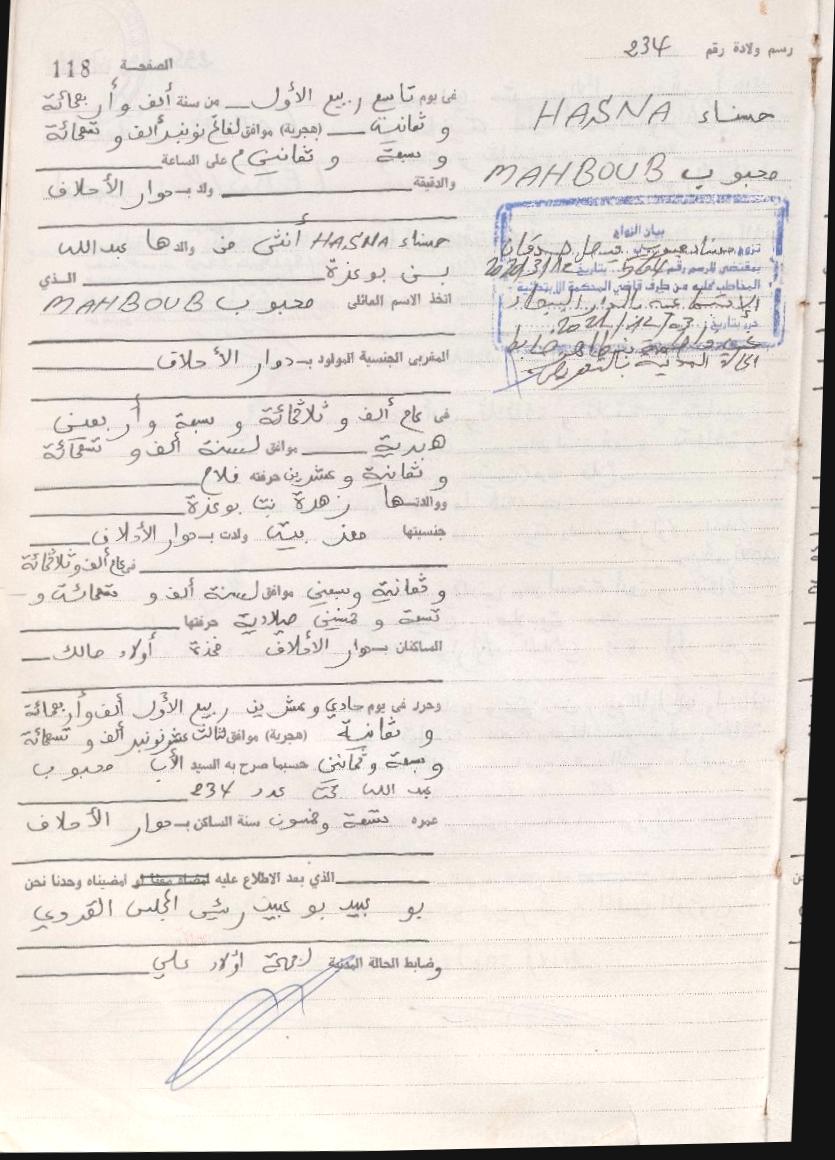 رسم ولادة رقم 234
حسناء HASNA
محبوب MAHBOUB
بيان الزواج
تزوج حسناء محبوب
بمقتضى الرسم رقم 564 بتاريخ
المخاطب عليه من طرف قاضي المحكمة الابتدائية
الاجتماعية بالدار البيضاء
حرر بتاريخ:
الحالة المدنية بالتفويض
الصفحة 118
في يوم تاسع ربيع الأول من سنة ألف وأربعمائة
وثمانية (هجرية) موافق لفاتح نونبر ألف و تسعمائة
و سبعة و ثمانين م على الساعة
والدقيقة ولد بـ دوار الأحلاف
حسناء HASNA أنثى من والدها عبد الله
بن بوعزة الذي
اتخذ الاسم العائلي محبوب MAHBOUB
المغربي الجنسية المولود بـ دوار الأحلاف
في عام ألف و ثلاثمائة و سبعة وأربعين
هجرية موافق لسنة ألف و تسعمائة
و ثمانية وعشرين حرفته فلاح
ووالدتها زهرة بنت بوعزة
جنسيتها مغربية ولدت بـ دوار الأحلاف
في عام ألف وثلاثمائة
و ثمانية وسبعين موافق لسنة ألف و تسعمائة و
تسعة و خمسين ميلادية حرفتها
الساكنان بـ دوار الأحلاف فخذة أولاد مالك
وحرر في يوم حادي وعشرين ربيع الأول ألف وأربعمائة
و ثمانية (هجرية) موافق لثالث عشر نونبر ألف و تسعمائة
و سبعة وثمانين حسبما صرح به السيد الأب محبوب
عبد الله تحت عدد 234
عمره تسعة وخمسون سنة الساكن بـ دوار الأحلاف
الذي بعد الاطلاع عليه امضاه معنا او امضيناه وحدنا نحن
بو عبيد بو عبيد رئيس المجلس القروي
وضابط الحالة المدنية لجماعة أولاد علي